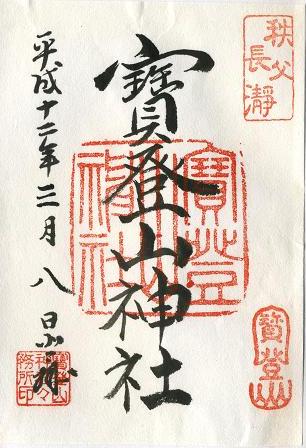 秩父
長瀞
寳登山神社
寳登山
神社
寳登山
平成十二年三月八日
寳登山
神社々
務所印